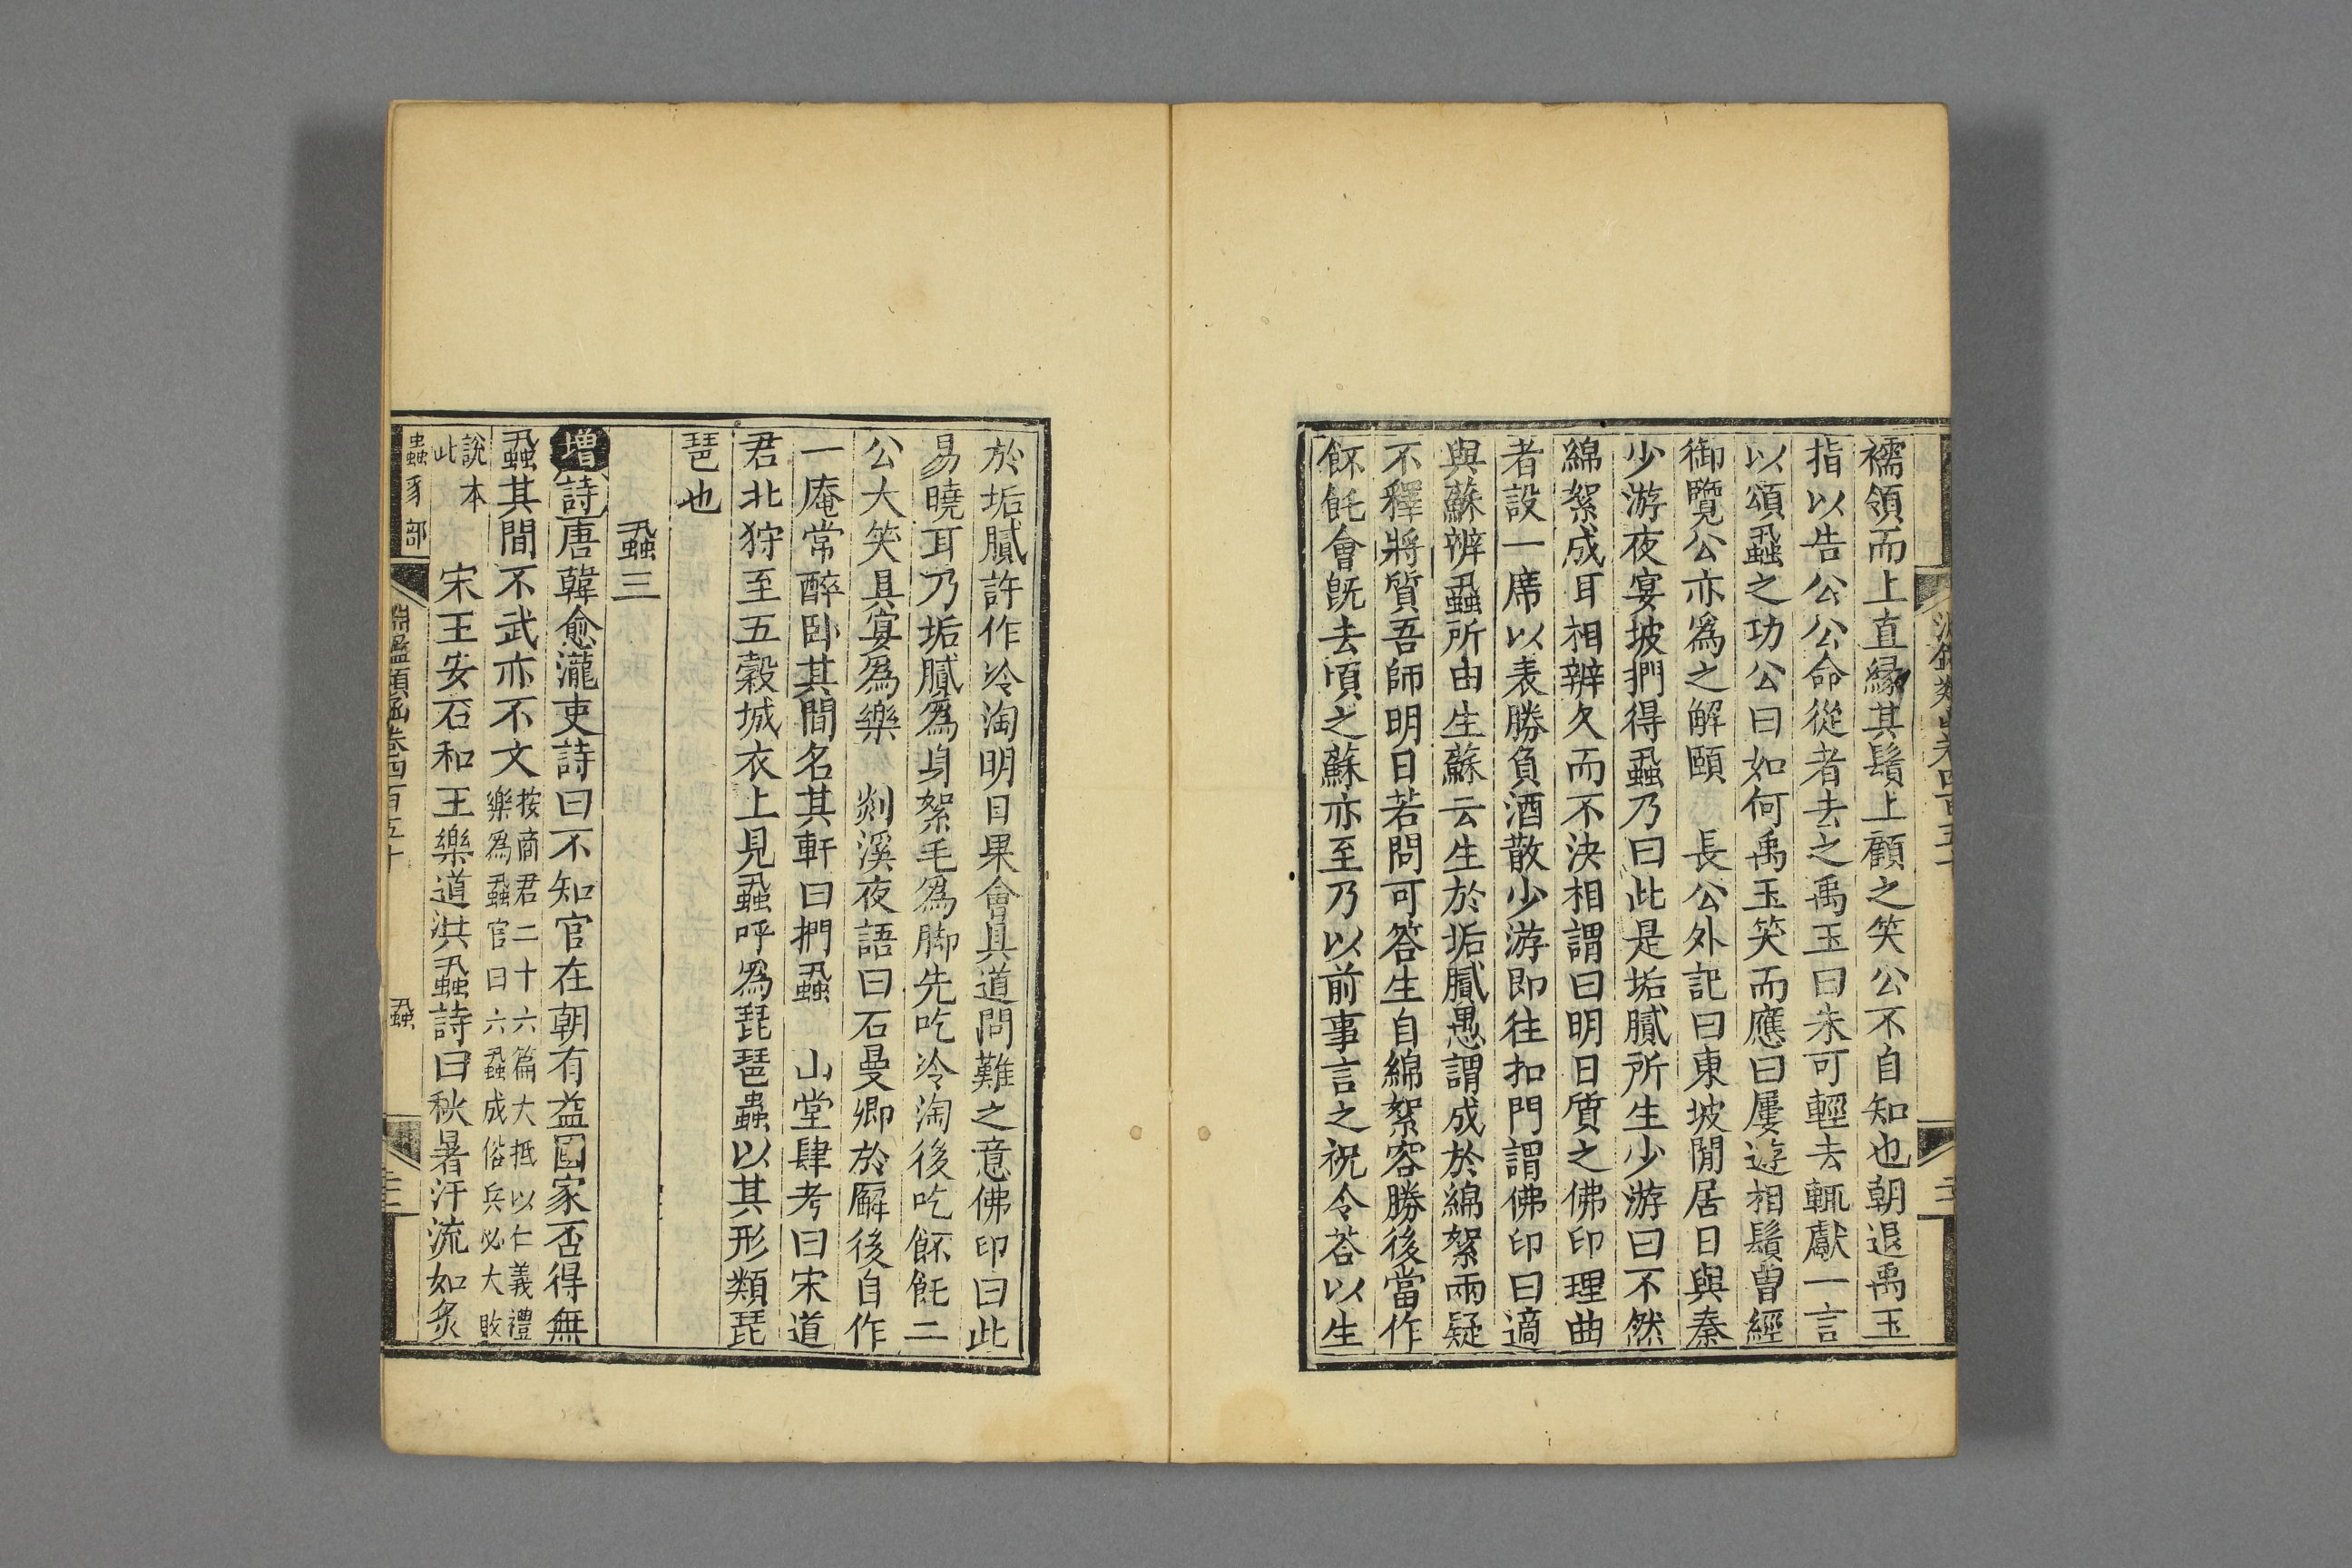 襦領而上直緣其鬚上顧之笑公不自知也朝退禹玉
指以告公公命從者去之禹玉曰未可輕去輒獻一言
以頌蝨之功公曰如何禹玉笑而應曰屢遊相鬚曾經
御覽公亦爲之解頤 長公外記曰東坡閒居日與秦
少游夜宴坡捫得蝨乃曰此是垢膩所生少游曰不然
綿絮成耳相辨久而不決相謂曰明日質之佛印理曲
者設一席以表勝負酒散少游卽往扣門謂佛印曰適
與蘇辨蝨所由生蘇云生於垢膩愚謂成於綿絮兩疑
不釋將質吾師明日若問可答生自綿絮容勝後當作
餅飥會旣去頃之蘇亦至乃以前事言之祝令荅以生
於垢膩許作冷淘明日果會具道問難之意佛印曰此
易曉耳乃垢膩爲身絮毛爲脚先吃冷淘後吃餅飥二
公大笑具宴爲樂 剡溪夜語曰石曼卿於廨後自作
一庵常醉臥其間名其軒曰捫蝨 山堂肆考曰宋道
君北狩至五穀城衣上見蝨呼爲琵琶蟲以其形類琵
琶也
蝨三
增詩唐韓愈瀧吏詩曰不知官在朝有益國家否得無
蝨其間不武亦不文按商君二十六篇大抵以仁義禮
樂爲蝨官曰六蝨成俗兵必大敗
說本
此 宋王安石和王樂道洪蝨詩曰秋暑汗流如炙
蟲豸部
淵鑑類函卷四百五十
蝨